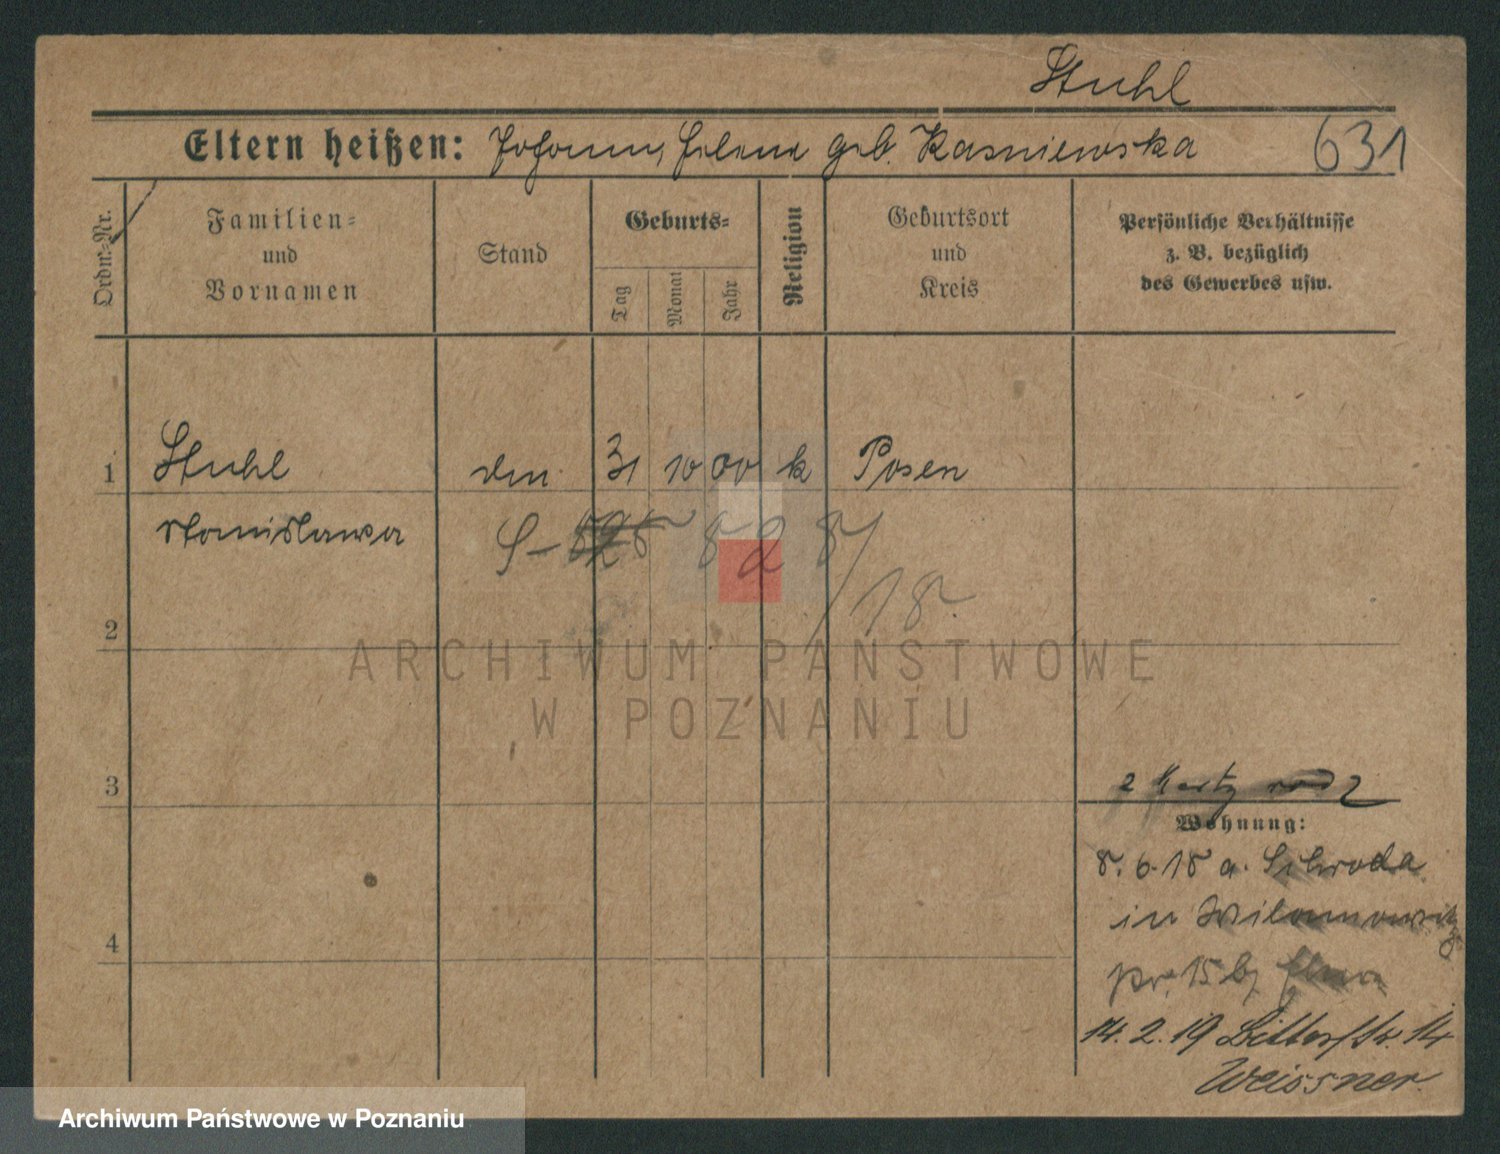 Stuhl
Eltern heißen: Johann, Helena geb. Kasniewska 631
Ordn.-Nr.
Familien-
und
Vornamen
Stand
Geburts-
Tag
Monat
Jahr
Religion
Geburtsort
und
Kreis
Persönliche Verhältnisse
z. B. bezüglich
des Gewerbes usw.
1 Stuhl 31 10 00 k Posen
Stanislawa
S- 828/18.
2
ARCHIWUM PAŃSTWOWE
W POZNANIU
3
Wohnung:
8. 6. 18 a. Schroda
in Wilamowitz
pr. 15 b/
4
14. 2. 19 14
Weissner.
Archiwum Państwowe w Poznaniu